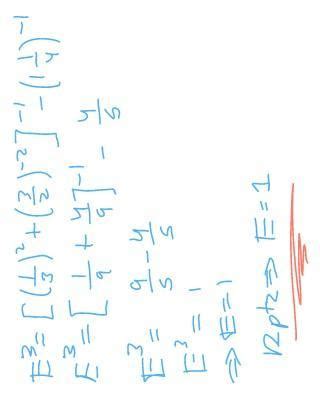 E³ = [(1/3)² + (3/2)⁻²]⁻¹ - (1 1/4)⁻¹
E³ = [1/9 + 4/9]⁻¹ - 4/5
E³ = 9/5 - 4/5
E³ = 1
⇒ E = 1
Rpta ⇒ E = 1